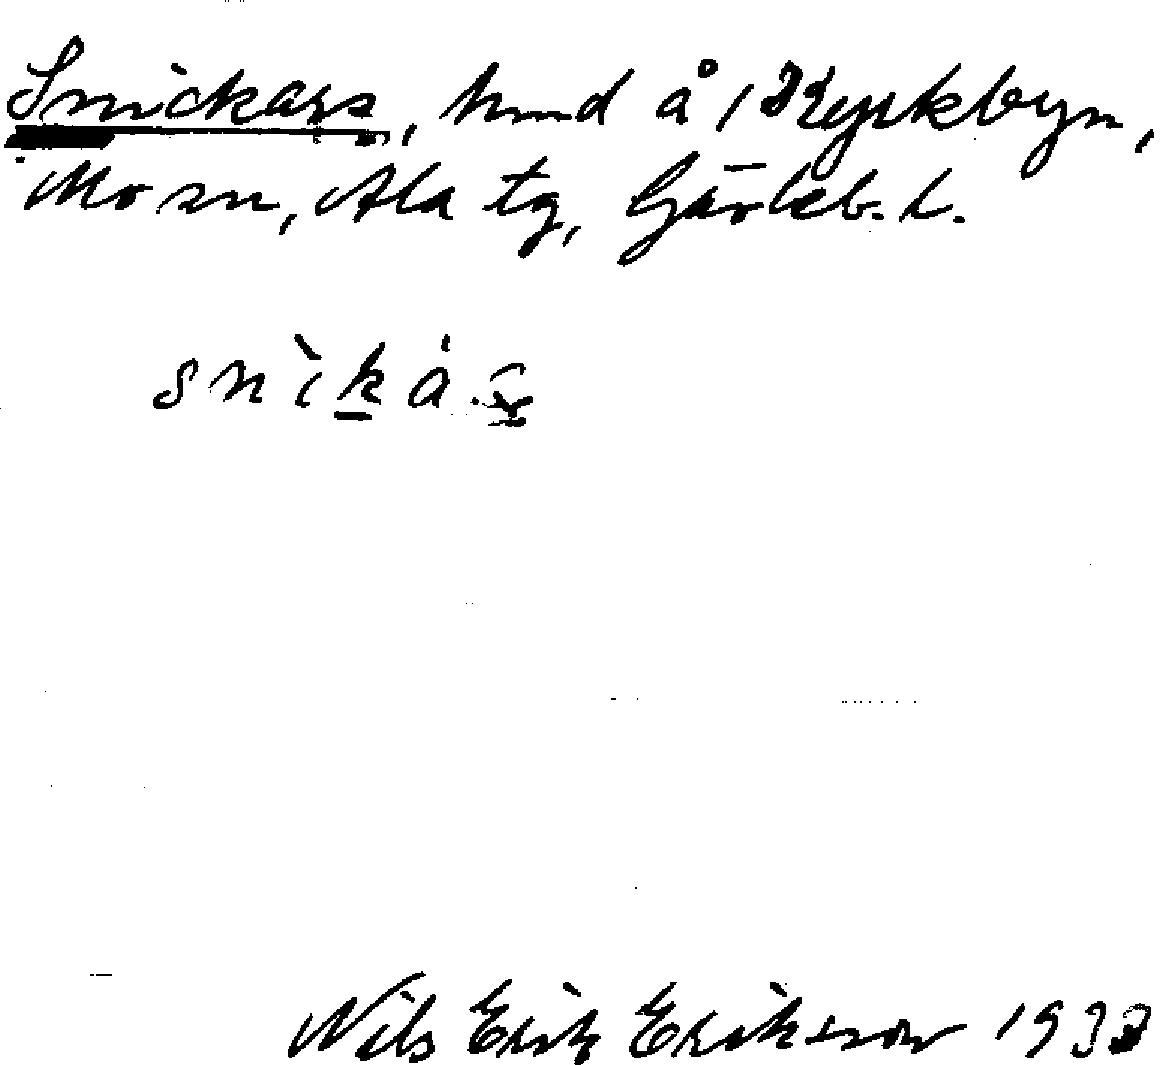 Snickars, hmd å 1 Kyrkbyn,
Mo sn, Ala tg, Gävleb. l.
snìkà.s
Nils Erik Erikson 193